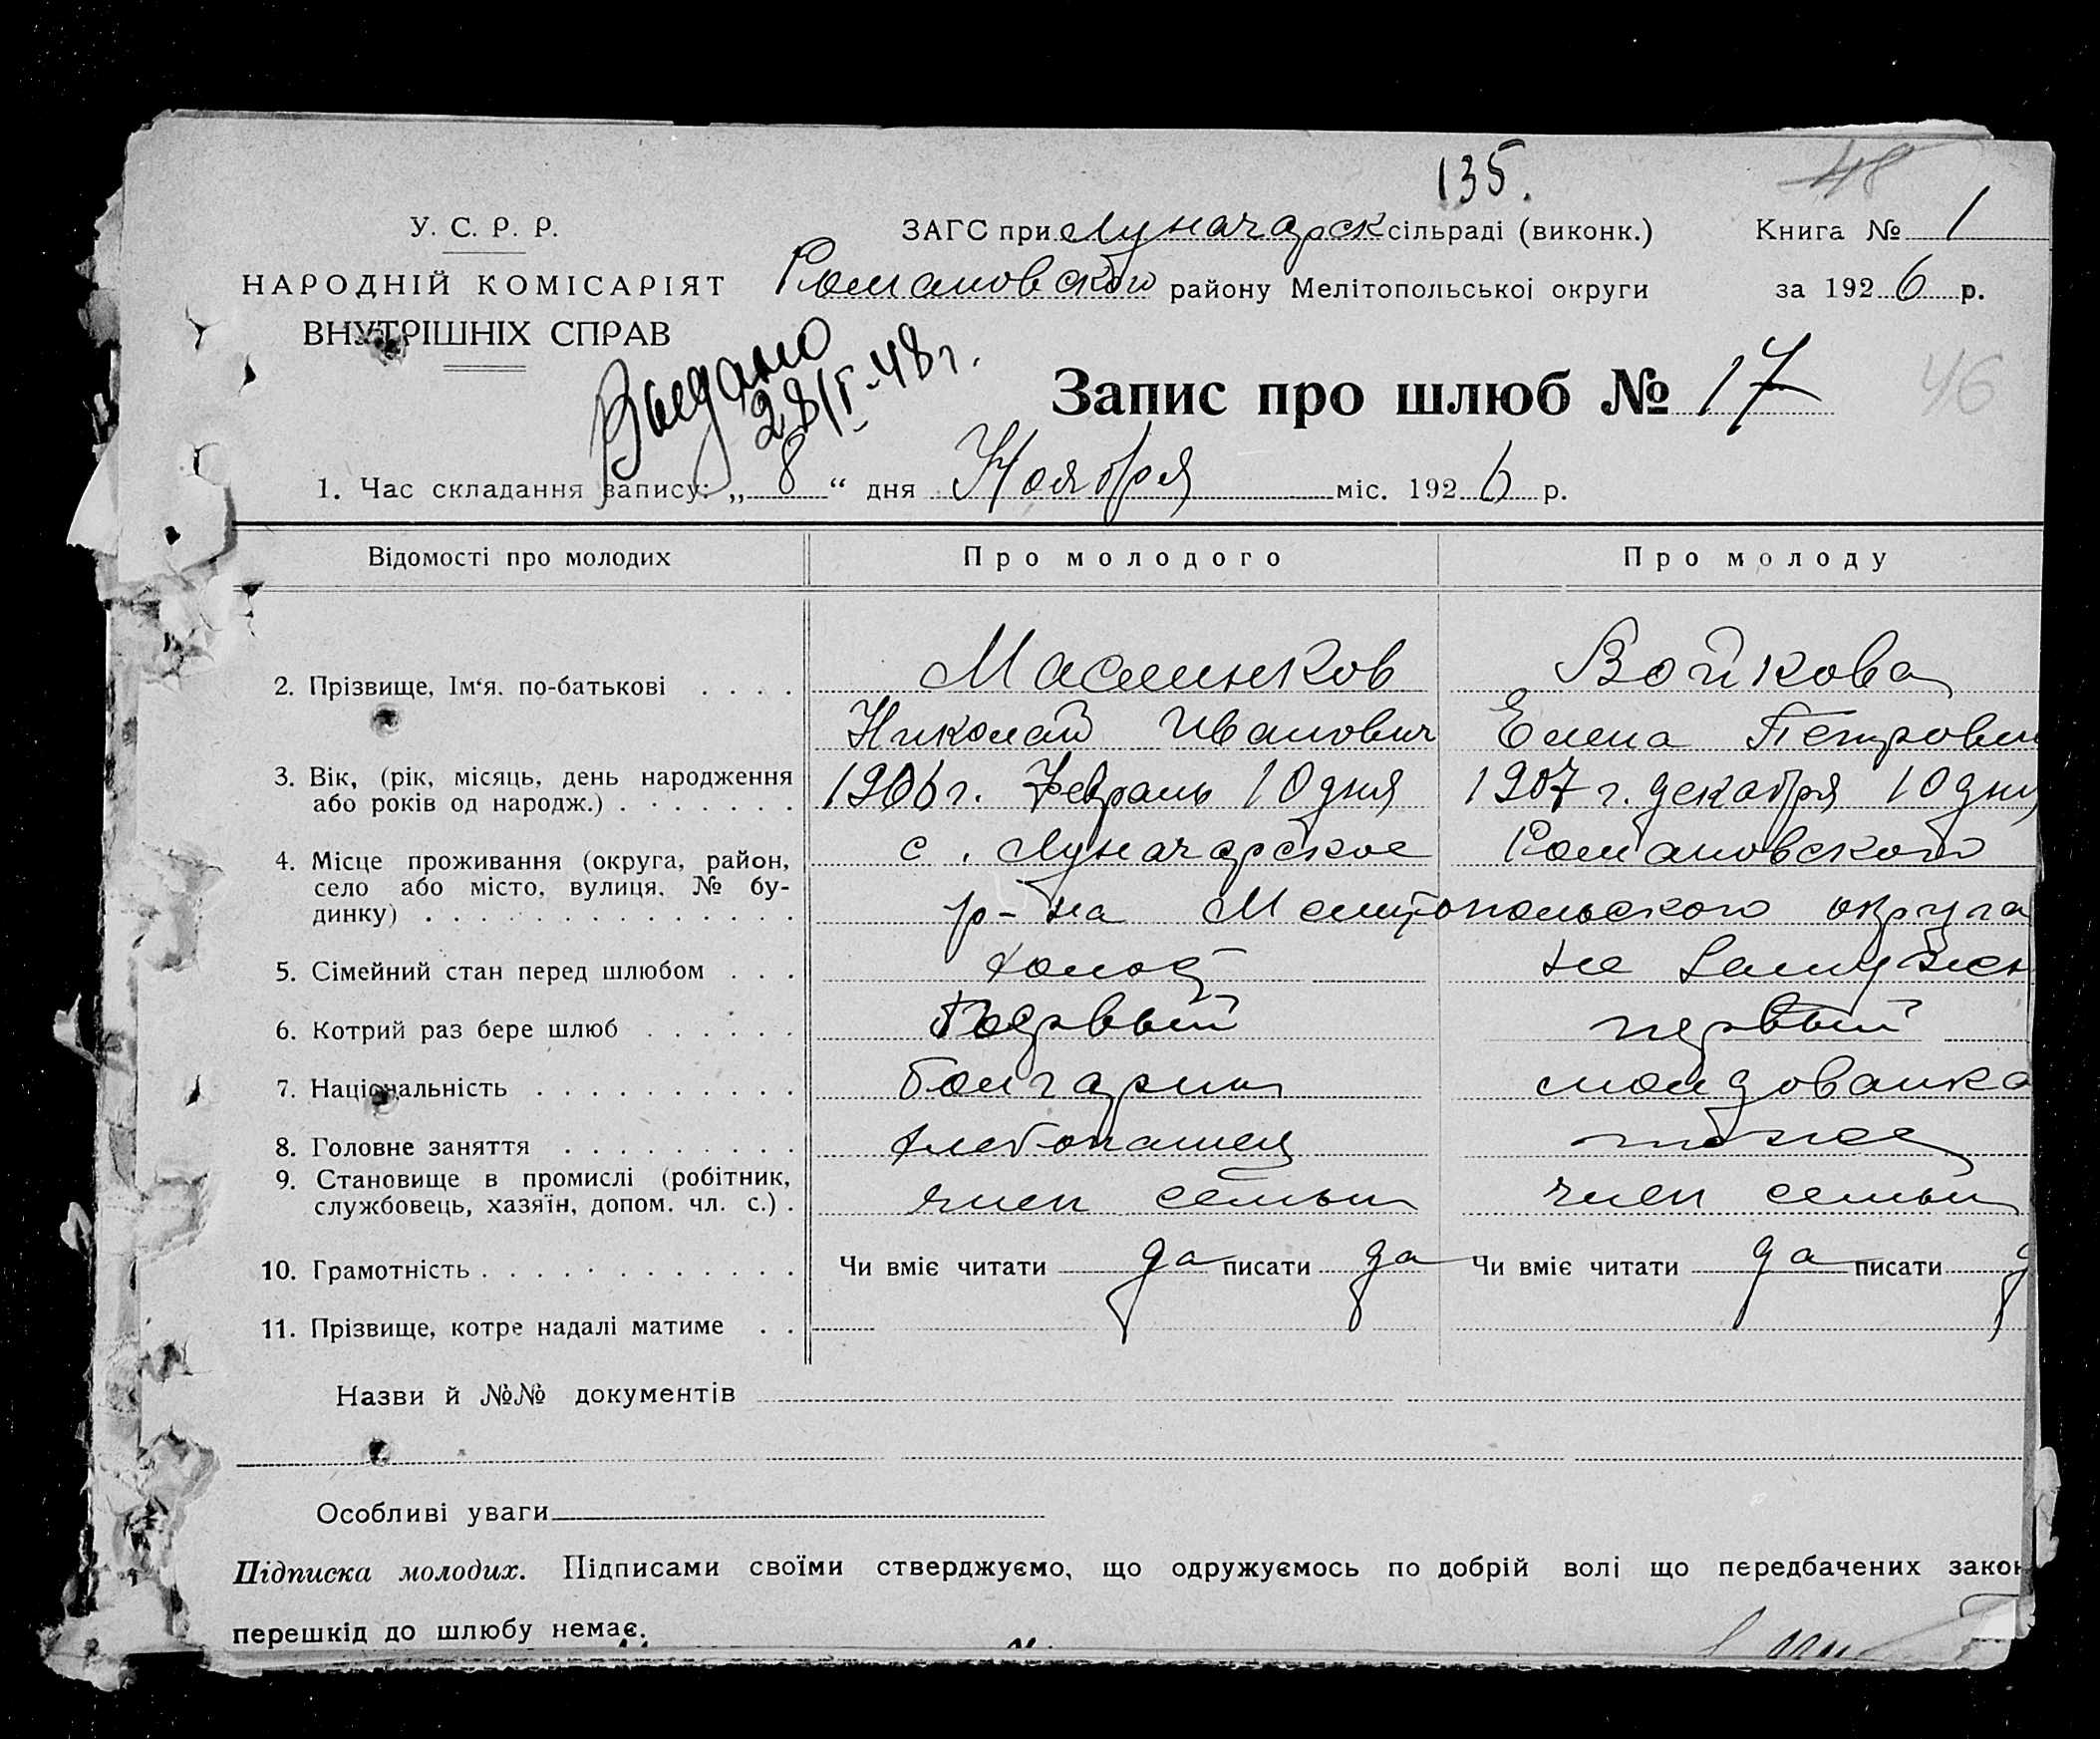 135.
48
У. С. Р. Р.
ЗАГС при Луначарск сільраді (виконк.)
Книга № 1
НАРОДНІЙ КОМІСАРІЯТ
Романовского району Мелітопольської округи
за 1926 р.
ВНУТРІШНІХ СПРАВ
Выдано
28/I-48 г.
Запис про шлюб № 17
46
1. Час складання запису: „ 8 “ дня Ноября міс. 1926 р.
Відомості про молодих
Про молодого
Про молоду
2. Прізвище, Ім‘я. по-батькові . . . .
Войкова
Николай Иванович
Елена Петровн
3. Вік, (рік, місяць, день народження
або років од народж.) . . . . . . .
1906 г. Февраль 10 дня
1907 г. декабря 10 дня
4. Місце проживання (округа, район,
село або місто, вулиця, № бу-
динку) . . . . . . . . . . . . . .
с. Луначарское Романовского
р-на Мелитопольского округа
5. Сімейний стан перед шлюбом . . .
холост
не замужем
6. Котрий раз бере шлюб . . . . . .
Первый
первый
7. Національність . . . . . . . . . .
болгарин
молдованка
8. Головне заняття . . . . . . . . .
хлебопашец
тоже
9. Становище в промислі (робітник,
службовець, хазяїн, допом. чл. с.) .
член семьи
член семьи
10. Грамотність . . . . . . . . . . . .
Чи вміє читати да писати да
Чи вміє читати да писати д
11. Прізвище, котре надалі матиме . .
Назви й №№ документів
Особливі уваги
Підписка молодих. Підписами своїми стверджуємо, що одружуємось по добрій волі що передбачених закон
перешкід до шлюбу немає.